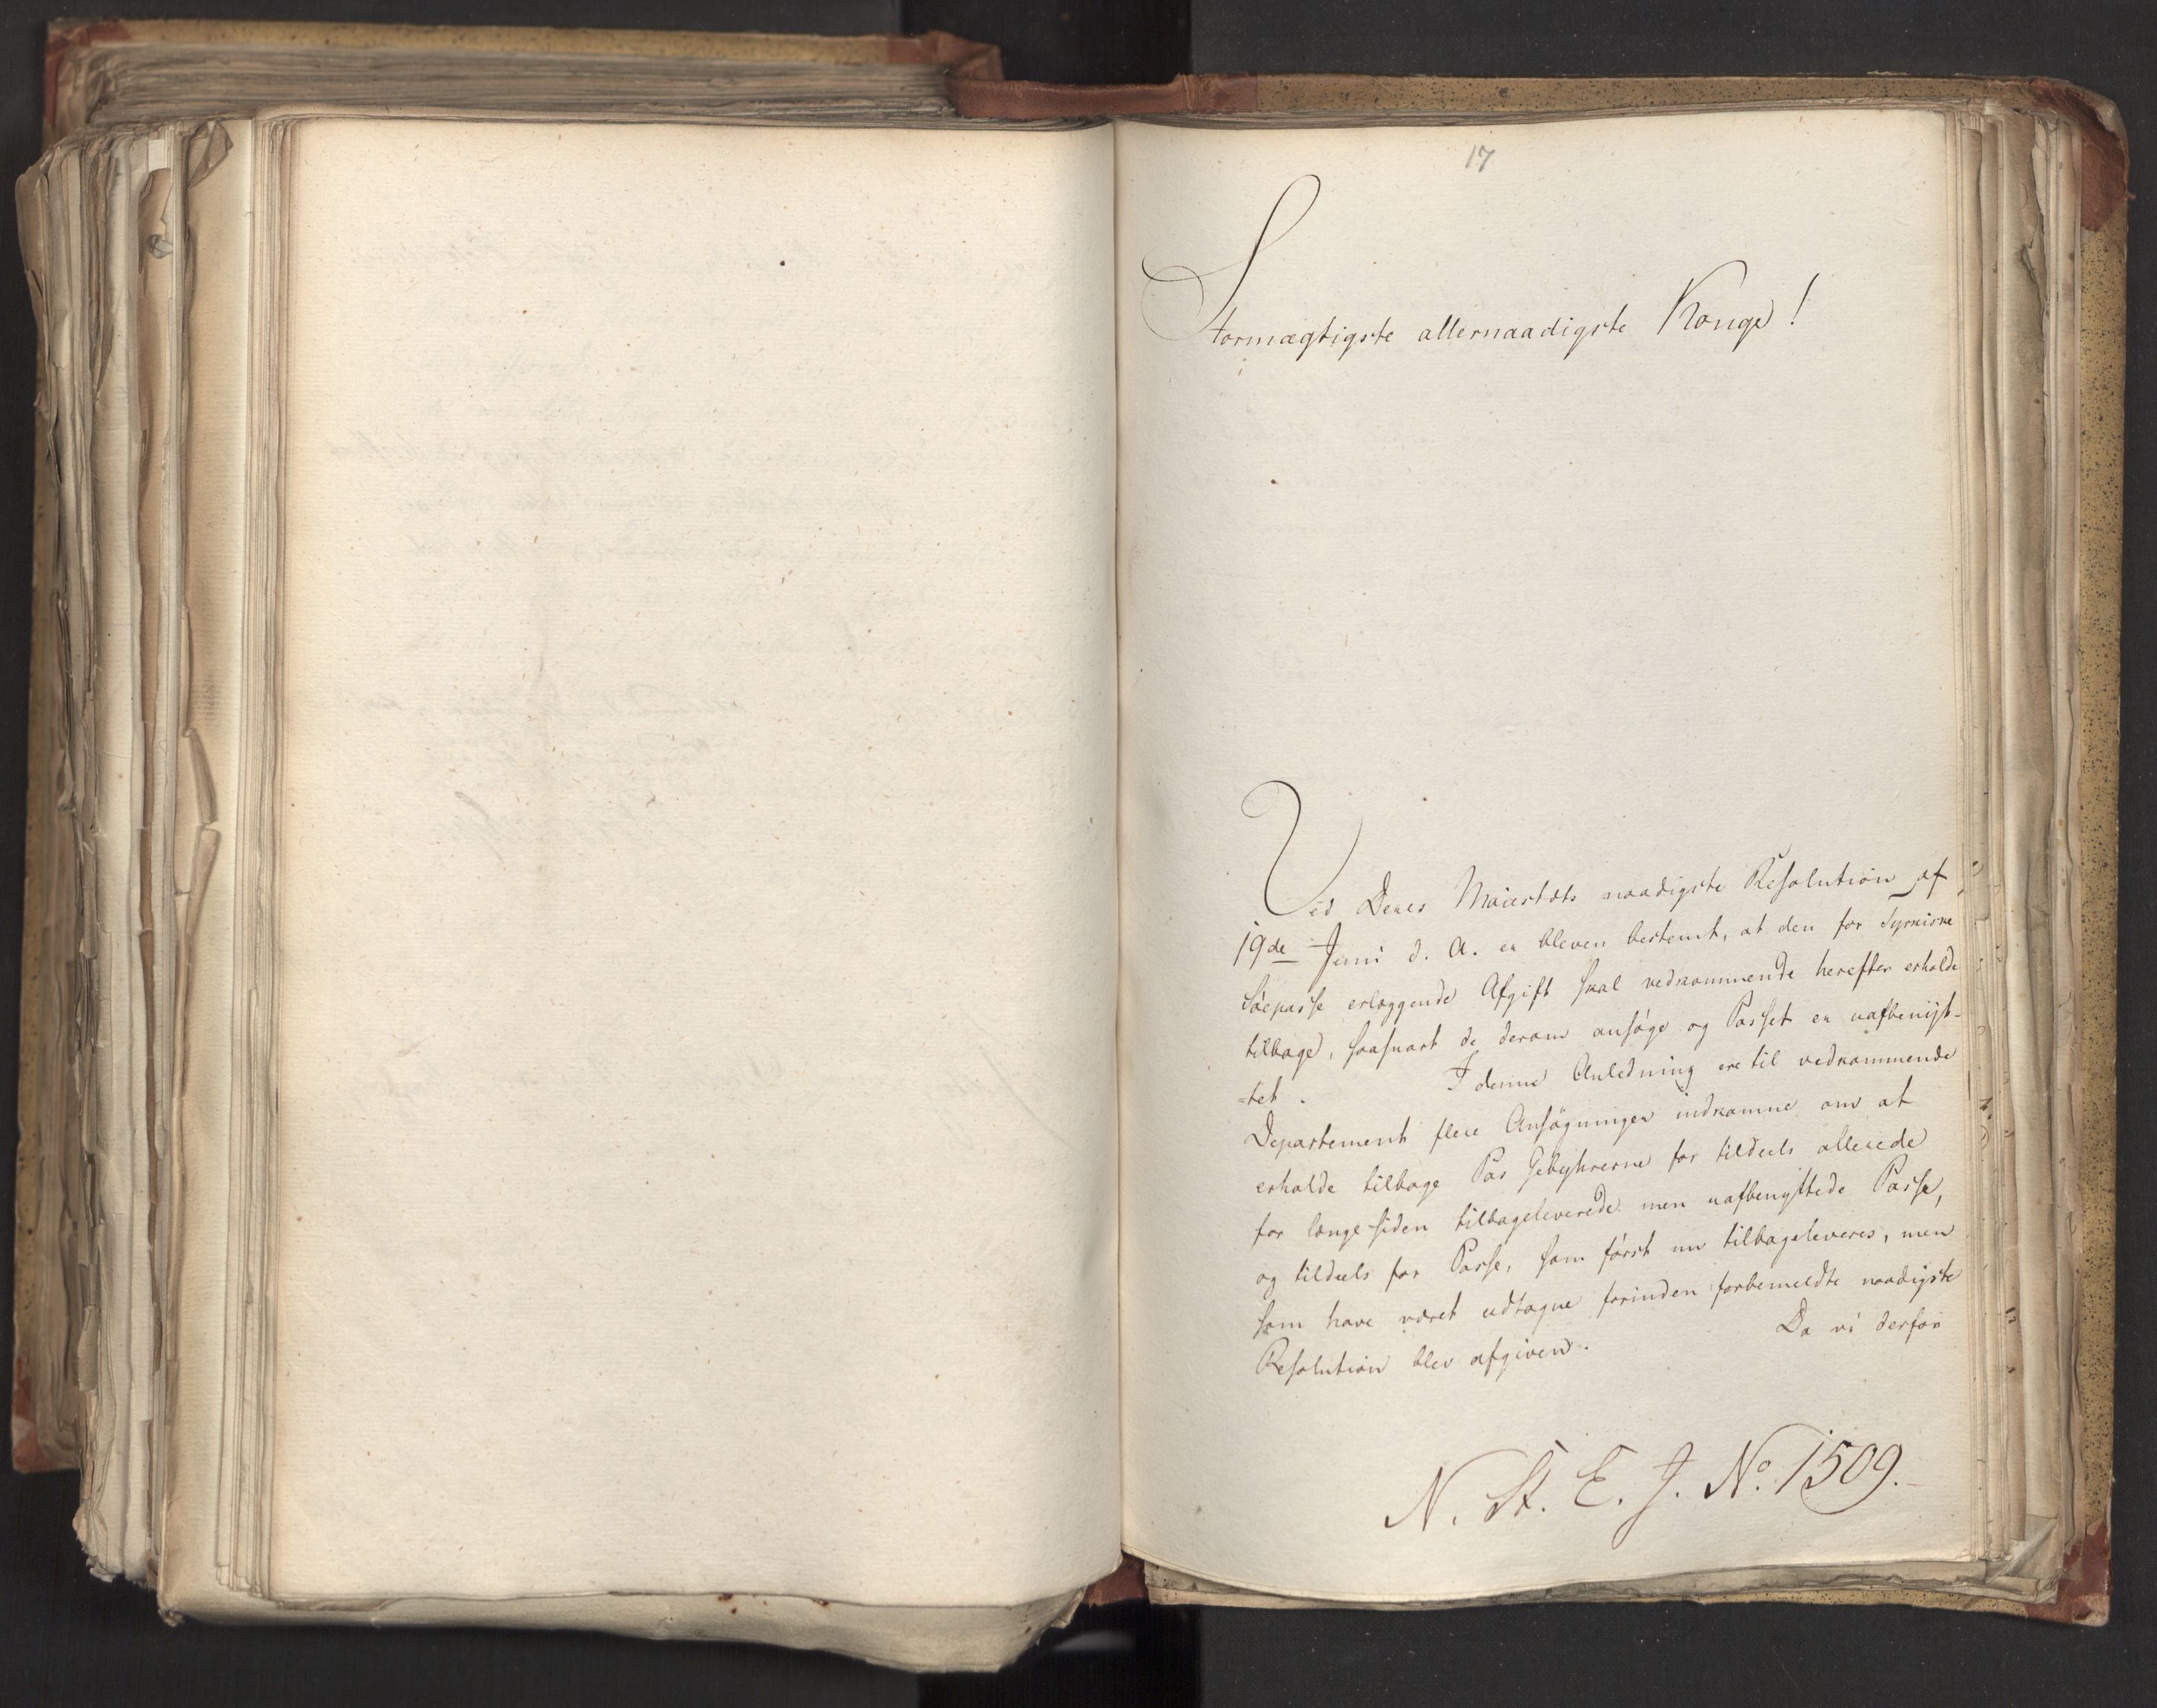 17
Stormægtigste allernaadigste Konge!
Ved Deres Maiestæts naadigste Resolution af
19de Juni d. A. er bleven bestemt, at den for Tyrkiske
Söepasse erlæggende Afgift skal vedkommende herefter erholde
tilbage, saasnart de derom ansöge og Passet er uafbenijt-
-tet. I denne Anledning ere til vedkommende
Departement flere Ansögninger indkomne om at
erholde tilbage Pas Gebyhrerne for tildeels allerede
for længe siden tilbageleverede men uafbenyttede Passe,
og tildeels for Passe, som först nu tilbageleveres, men
som have været udtagne forinden forbemeldte naadigste
Resolution blev afgiven. Da vi derfor
N. St. E. J. No. 1509.